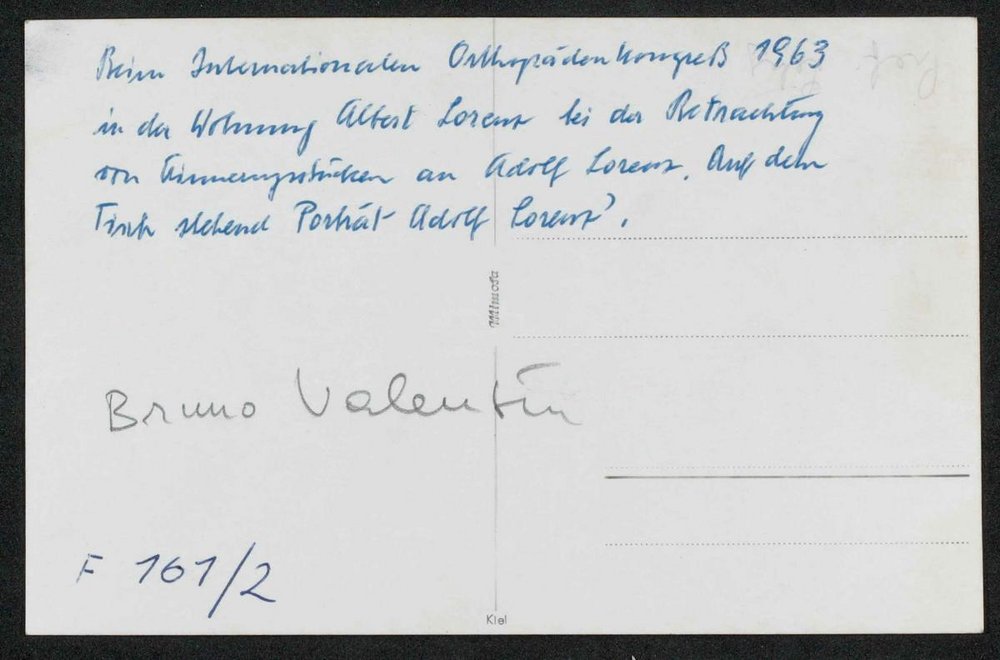 Beim Internationalen Orthopädenkongreß 1963
in der Wohnung Albert Lorenz bei der Betrachtung
von Erinnerungsstücken an Adolf Lorenz. Auf dem
Tisch stehend Porträt Adolf Lorenz'.
Mimosa
Bruno Valentin
F 161/2
Kiel